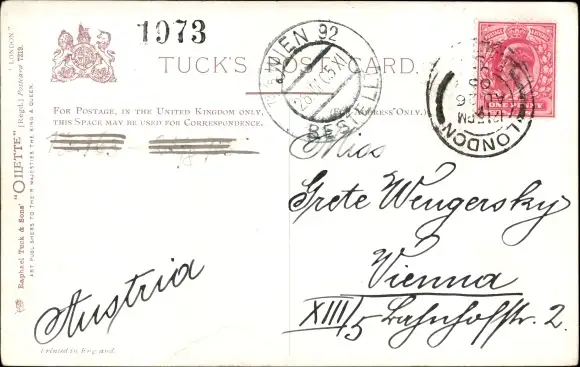 1973
TUCK'S POST CARD.
WIEN 92
BESTELLT
ONE PENNY
LONDON
FOR POSTAGE, IN THE UNITED KINGDOM ONLY,
THIS SPACE MAY BE USED FOR CORRESPONDENCE.
(FOR ADDRESS ONLY.)
Miss
Grete Wengersky
Vienna
XIII/5 Bahnhofstr. 2.
Austria
Printed in England.
Raphael Tuck & Sons' "OILETTE" [Regd.] Postcard 7219.
ART PUBLISHERS TO THEIR MAJESTIES THE KING & QUEEN.
"LONDON"